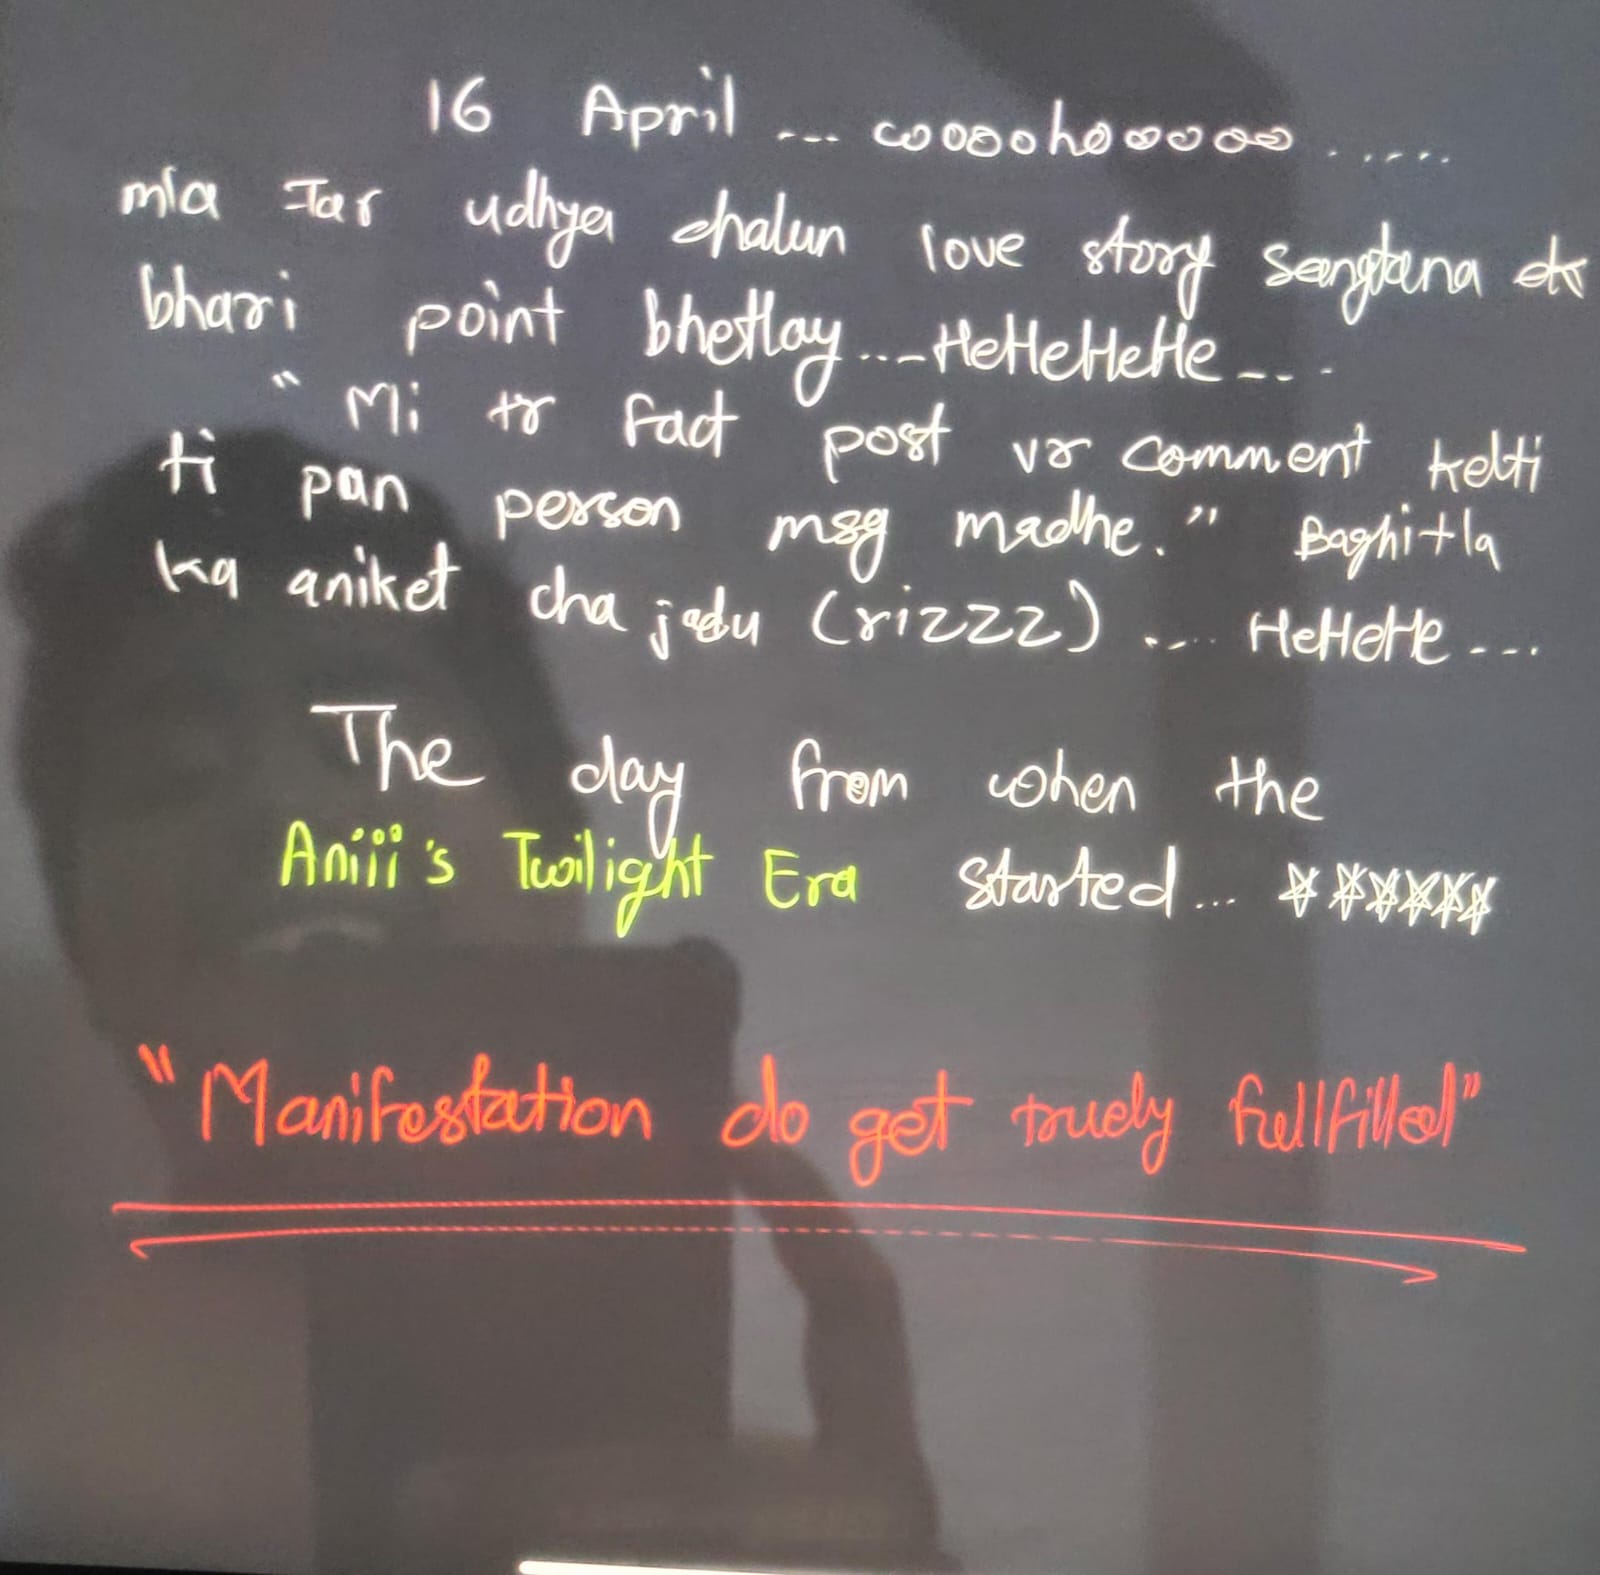 16 April ... woooohooooo ......
mla Jar udhya chalun love story sangtana ek
bhari point bhetlay...-HeHeHeHe--..
"Mi tr fact post vr comment kelti
ti pan person msg madhe." Baghitla
ka aniket cha jadu (rizzz).... HeHeHe....
The day from when the
Aniii's Twilight Era started... ☆☆☆☆☆☆
"Manifestation do get truely fullfilled"